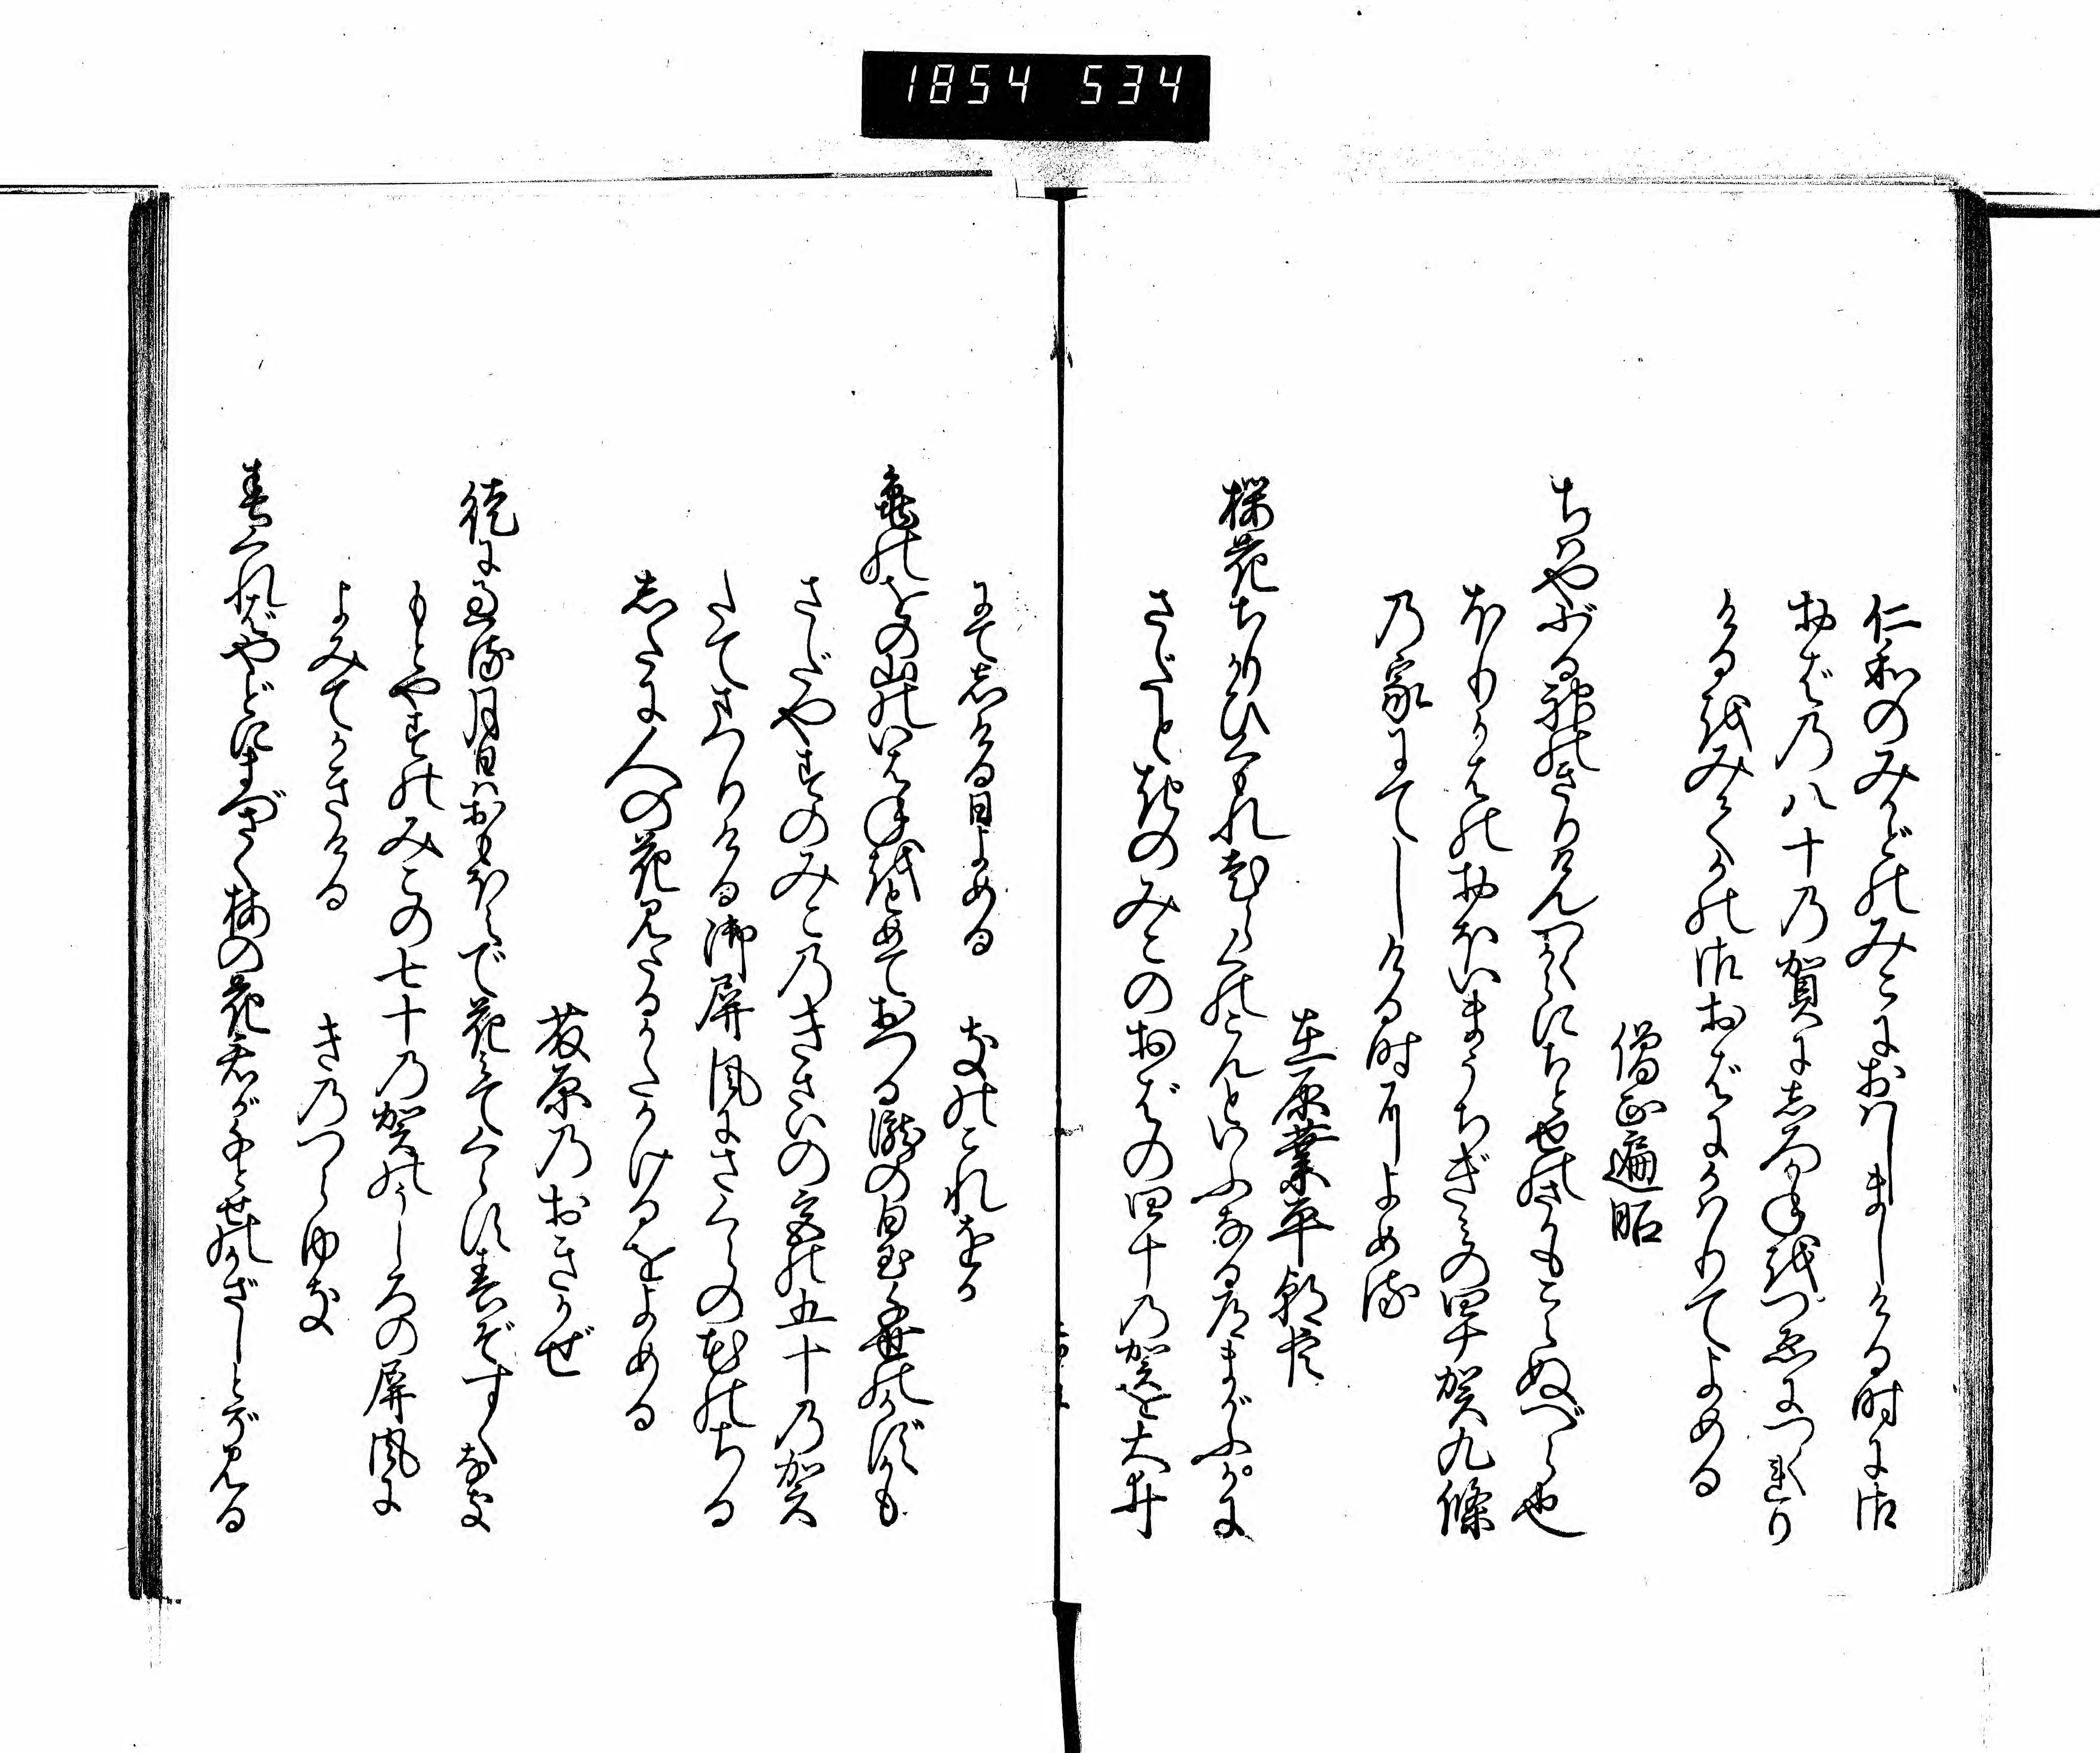 1854 534
仁和のみかどのみこにおはしましける時に御
おばの八十の賀にしろかねをつゑにつくれり
けるをみてかの御おばにかはりてよめる
僧正遍昭
ちはやぶる神のきりけんつくからにちとせのさかもこえぬべら也
ほりかはのおほいまうちぎみの四十賀九條
の家にてしける時によめる
在原業平朝臣
桜花ちりかひくもれ老らくのこんといふなる道まがふがに
さだときのみこのおばの四十の賀を大井
にて志ける日よめる　きのこれをか
亀のをの山のいはねをとめておつる瀧の白玉千世のかずかも
さだやすのみこのきさいの宮の五十の賀
たてまつりける御屏風にさくらの花のちる
志たに人の花見たるかたかけるをよめる
藤原のおきかぜ
徒に過る月日はおもほえで花みてくらす春ぞすくなき
もとやすのみこの七十の賀のうしろの屏風に
よみてかきける　きのつらゆき
春くればやどにまづさく梅の花君が千とせのかざしとぞ見る